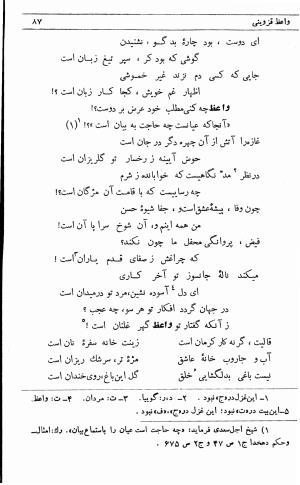 واعظ قزوینی ۸۷
ای دوست ، بود چارهٔ بد گو ، نشنیدن
گوشی که بود کر ، سپر تیغ زبان است
جایی که کسی دم نزند غیر خموشی
اظهار غم خویش ، کجا کار زبان است ؟!
واعظ چه کنی مطلب خود عرض بر دوست؟!
«آنجا که عیانست چه حاجت به بیان است»؟! (۱)
غازه را آتش از آن چهره دگر در جان است
حوض آیینه ز رخسار تو گلریزان است
درنظر ۲ مدّ نگاهیست که خوابانده ز شرم
چه رساییست که با قامت آن مژگان است؟!
چون وفا ، پیشهٔ عشق است و ، جفا شیوهٔ حسن
من همه اینم و، آن شوخ سراپا آن است!
فیض ، پروانگی محفل ما چون نکند؟
که چراغش ز صفای قدم یاران است!
میکند نالهٔ جانسوز تو آخر کاری
ای دل ۴ آسوده نشین، مرد تو در میدان است
در جهان گردد افکار تو هر سو، چه عجب ؟
ز آنکه گفتار تو واعظ گهر غلتان است ! ۵
قالبت ، گرنه کار کرمان است زینت خانه سفرهٔ نان است
آب و جاروب خانهٔ عاشق مژهٔ تر، سرشك ریزان است
نیست باغی بدلگشایی خلق گل این باغ، روی خندان است
۱ــ این غزل در «ج» نبود. ۲ــ د،ر: گوییا. ۳ــ ت: مردان. ۴ــ ت: واعظ.
۵ــ این بیت در «ت» نبود؛ این غزل در «ج»، «ف» نبود.
۱) شیخ اجل سعدی فرماید: «چه حاجت است عیان را باستماع بیان». رك: امثالــ
و حکم دهخدا ج۱ ص ۴۷ و ج۲ ص ۶۷۵